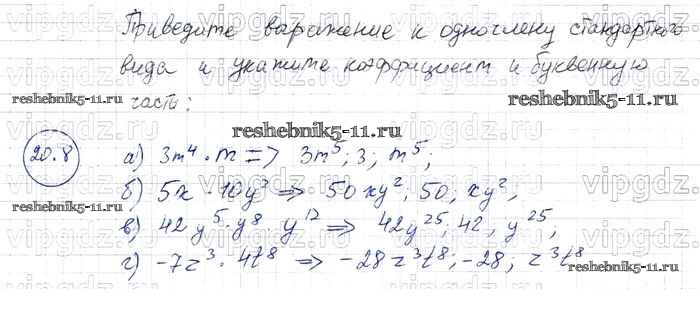 Приведите выражение к одночлену стандартного
вида и укажите коэффициент и буквенную
часть:
reshebnik5-11.ru
reshebnik5-11.ru
reshebnik5-11.ru
20.8
а) 3m⁴ · m => 3m⁵; 3; m⁵;
б) 5x 10y² => 50xy², 50; xy²;
в) 42y⁵ · y⁸ y¹² => 42y²⁵, 42, y²⁵,
г) -7z³ · 4t⁸ => -28z³t⁸; -28; z³t⁸
reshebnik5-11.ru
vipgdz.ru vipgdz.ru vipgdz.ru vipgdz.ru